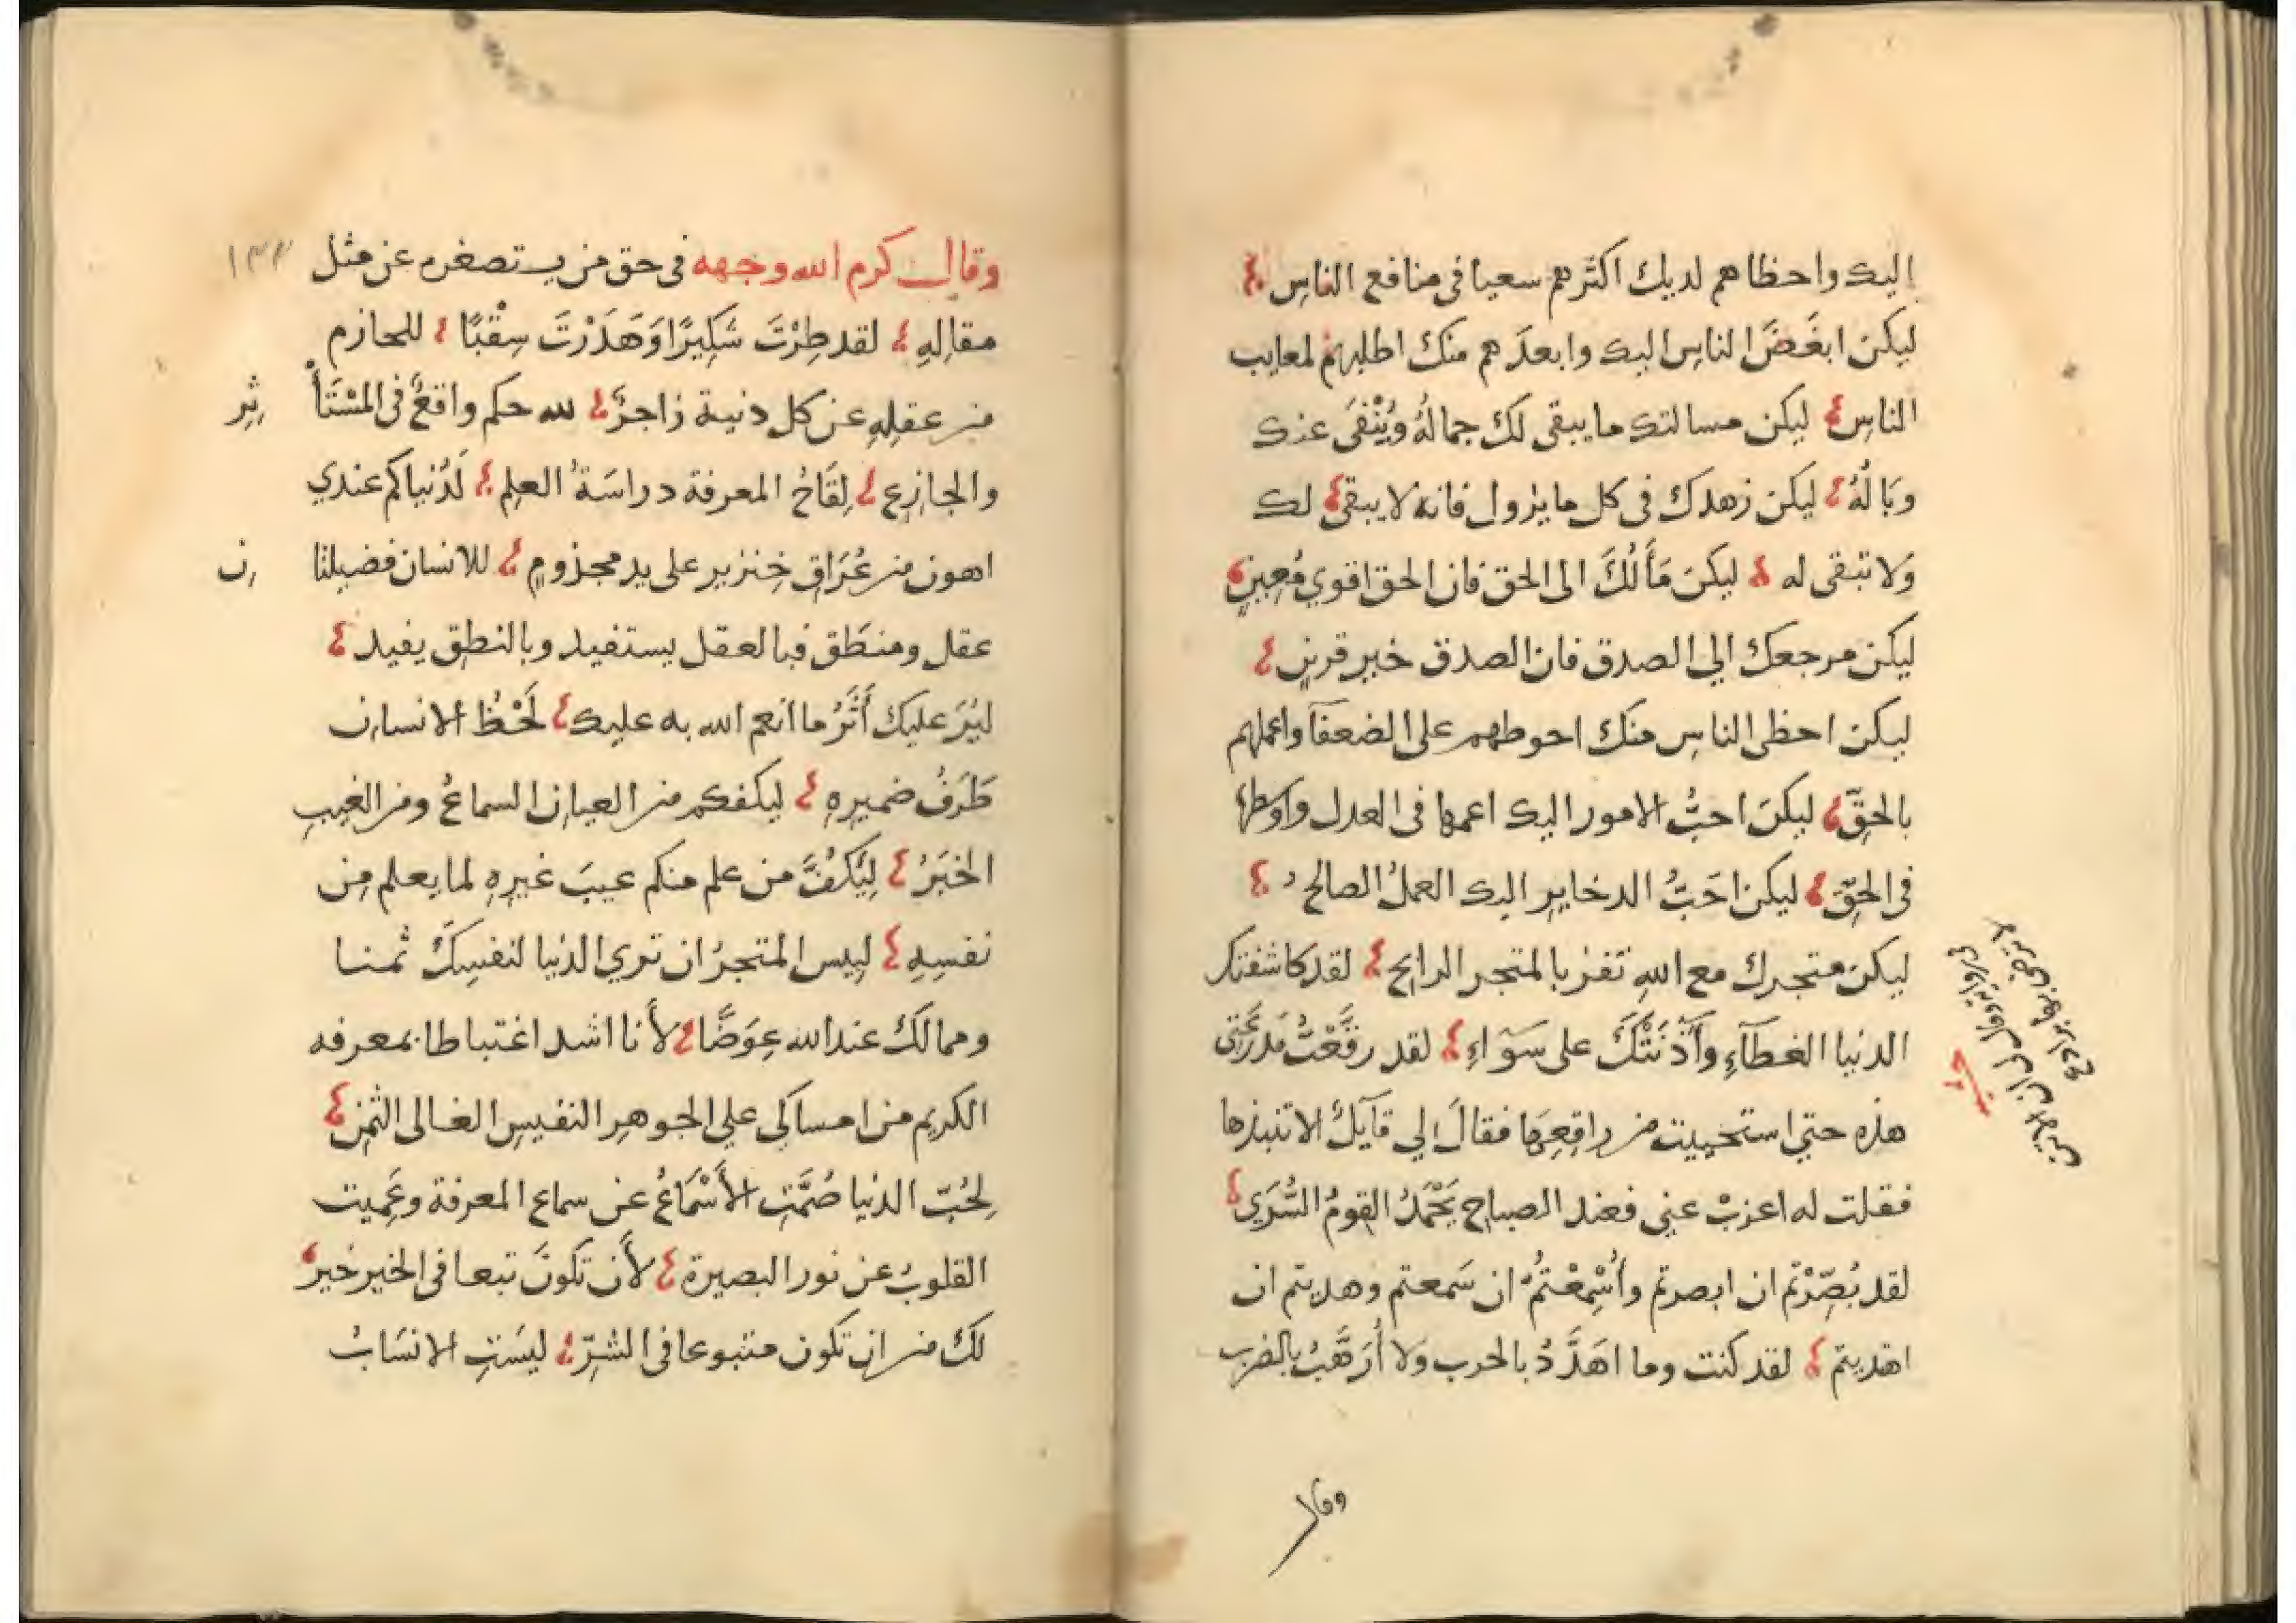 اليك واحظاهم لديك اكثرهم سعيا فى منافع الناسِ
ليكن ابغَضَ الناسِ اليك وابعدَهم منك اطلبهم لمعايب
الناسِ ليكن مسالتك ما يبقى لك جمالُهُ ويُنْفَى عنك
وبَالُهُ ليكن زهدك فى كل ما يزول فانه لا يبقى لك
وَلا تبقى له ليكن مَألُكَ الى الحق فان الحق اقوي مُعِينٍ
ليكن مرجعك الي الصدق فان الصدق خير قرينٍ
ليكن احظى الناسِ منك احوطهم على الضعفآ واعملهم
بالحقِّ ليكن احبُّ الامور اليك اعمها فى العدل واوسطها
فى الحقِّ ليكن احَبُّ الدخايرِ اليك العملُ الصالحُ
ليكن متجرك مع اللهِ تفز بالمتجر الرابح لقد كاشفتك
الدنيا الغطآءِ وآذَنَتْكَ على سَوَآءٍ لقد رقَّعْتُ مدرعتى
هذه حتي استحييت من راقِعِهَا فقالَ لي قآيلٌ الا تنبذها
فقلت له اعزبْ عني فعند الصباحِ يَحْمَدُ القومُ السُّرَي
لقد بُصِّرْتم ان ابصرتم وأُسْمِعْتُمْ ان سَمعتم وهديتم ان
اهديتم لقد كنت وما اهَدَّدُ بالحرب وَلا أُرَهَّبُ بالضرب
وقال
وقال كرم الله وجهه فى حق من يستصغره عن مثل
مقالِهِ لقد طِرْتَ شَكِيرًا وَهَدَرْتَ سِقْبًا للحازم
من عقلِهِ عن كل دنية زاجرٌ لله حكم واقعٌ فى المسْتَأْثِرِ
والجازِعِ لِقَاحُ المعرفة دراسَةُ العلمِ لَدُنياكم عندي
اهون من عُرَاقِ خِنزير على يد مجذومٍ للانسان فضيلتانِ
عقل ومنطَق فبالعقل يستفيد وبالنطق يفيد
ليُرَ عليك أَثَرُ ما انعم الله به عليك لَحْظُ الانسان
طَرَفُ ضميرِهِ ليكفكم من العيانِ السماعُ ومن الغيبِ
الخبَرُ لِيَكُفَّ من علم منكم عيبَ غيرِهِ لما يعلم مِن
نفسِهِ لبيس المتجرُ ان تري الدنيا لنفسِكَ ثمنا
ومما لك عند الله عِوَضًا لأنا اشد اغتباطا بمعرفه
الكريم من امساكي علي الجوهرِ النفيسِ الغالى الثمنِ
لِحُبِّ الدنيا صُمَّتِ الأَسْمَاعُ عن سماع المعرفة وعَمِيت
القلوبُ عن نور البصيرة لأَن تكونَ تبعا فى الخير خير
لك من ان تكون متبوعا فى الشرِّ ليسَتِ الانسَابُ